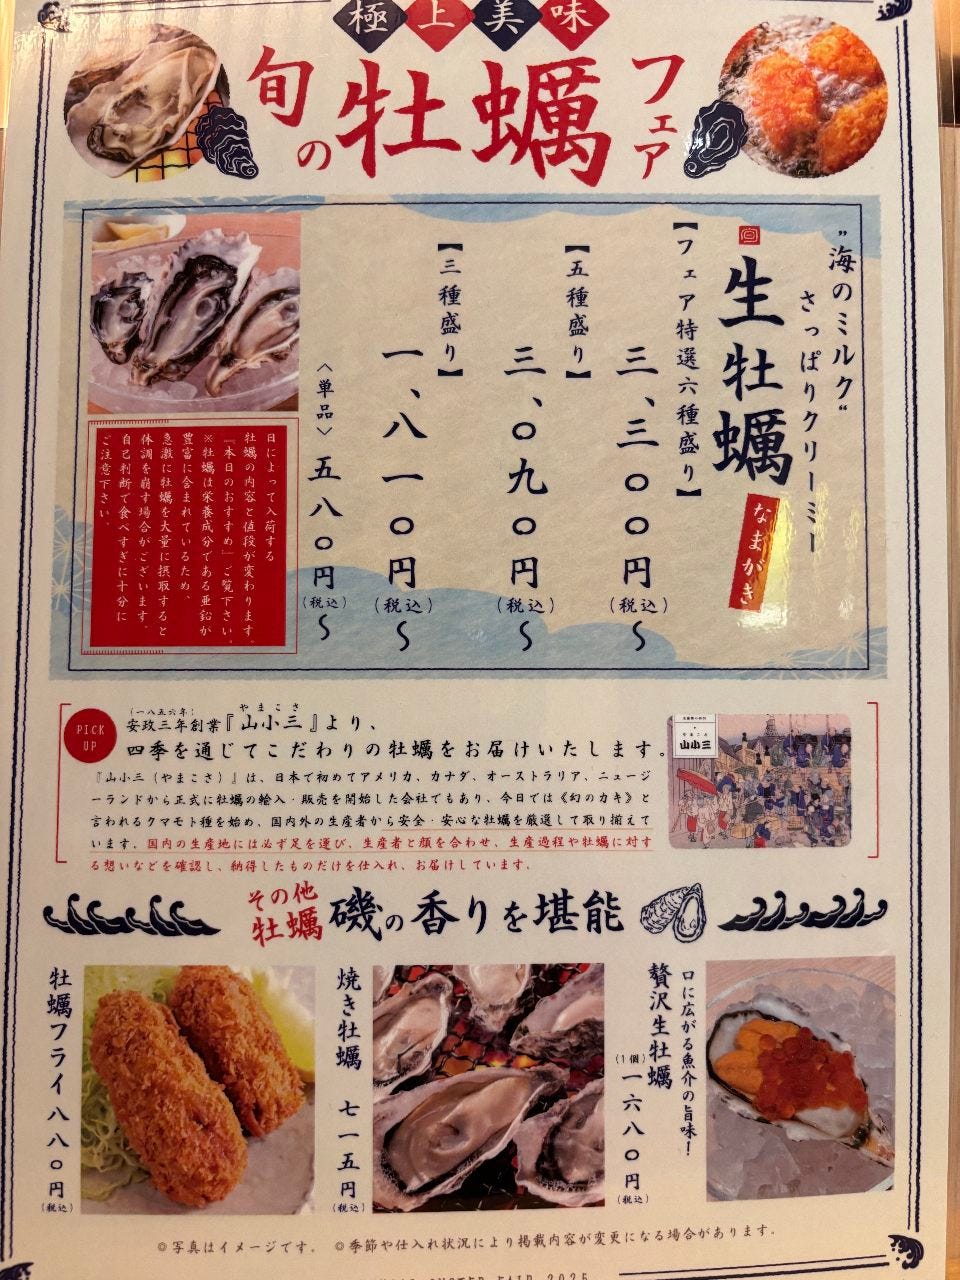 極上美味
旬の牡蠣フェア
〝海のミルク〟
さっぱりクリーミー
生牡蠣
なまがき
【フェア特選六種盛り】
三、三〇〇円(税込)～
【五種盛り】
三、〇九〇円(税込)～
【三種盛り】
一、八一〇円(税込)～
〈単品〉 五八〇円(税込)～
日によって入荷する
牡蠣の内容と値段が変わります。
『本日のおすすめ』ご覧下さい。
※牡蠣は栄養成分である亜鉛が
豊富に含まれているため、
急激に牡蠣を大量に摂取すると
体調を崩す場合がございます。
自己判断で食べすぎに十分に
ご注意下さい。
PICK
UP
(一八五六年)
やまこさ
安政三年創業『山小三』より、
四季を通じてこだわりの牡蠣をお届けいたします。
『山小三（やまこさ）』は、日本で初めてアメリカ、カナダ、オーストラリア、ニュージ
ーランドから正式に牡蠣の輸入・販売を開始した会社でもあり、今日では《幻のカキ》と
言われるクマモト種を始め、国内外の生産者から安全・安心な牡蠣を厳選して取り揃えて
います。国内の生産地には必ず足を運び、生産者と顔を合わせ、生産過程や牡蠣に対す
る想いなどを確認し、納得したものだけを仕入れ、お届けしています。
やまこさ
山小三
その他
牡蠣
磯の香りを堪能
口に広がる魚介の旨味！
贅沢生牡蠣
(1個)一六八〇円(税込)
焼き牡蠣 七一五円(税込)
牡蠣フライ 八八〇円(税込)
◎写真はイメージです。 ◎季節や仕入れ状況により掲載内容が変更になる場合があります。
OYSTER FAIR 2025